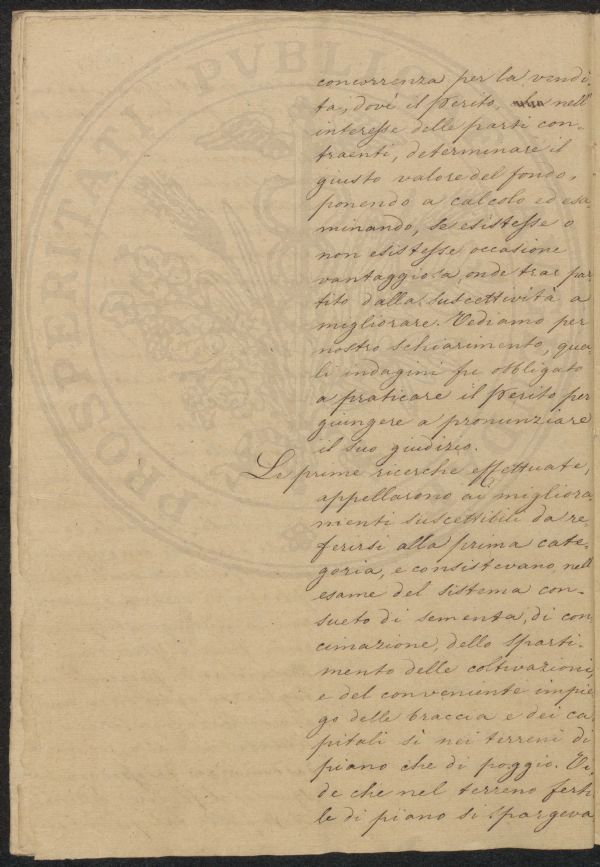 concorrenza per la vendi-
ta, dovè il Perito, nell'
interesse delle parti con-
traenti, determinare il
giusto valore del fondo,
ponendo a calcolo ed esa-
minando, se esistesse o
non esistesse occasione
vantaggiosa, onde trar par-
tito dalla suscettività a
migliorare. Vediamo per
nostro schiarimento, qua-
li indagini fu obbligato
a praticare il Perito per
giungere a pronunziare
il suo giudizio.
Le prime ricerche effettuate,
appellarono ai migliora-
menti suscettibili da re-
ferirsi alla prima cate-
goria, e consistevano, nell'
esame del sistema con-
sueto di sementa, di con-
cimazione, dello sparti-
mento delle coltivazioni,
e del conveniente impie-
go delle braccia e dei ca-
pitali sì nei terreni di
piano che di poggio. Vi-
de che nel terreno ferti-
le di piano si spargeva
PROSPERITATI PUBLIC